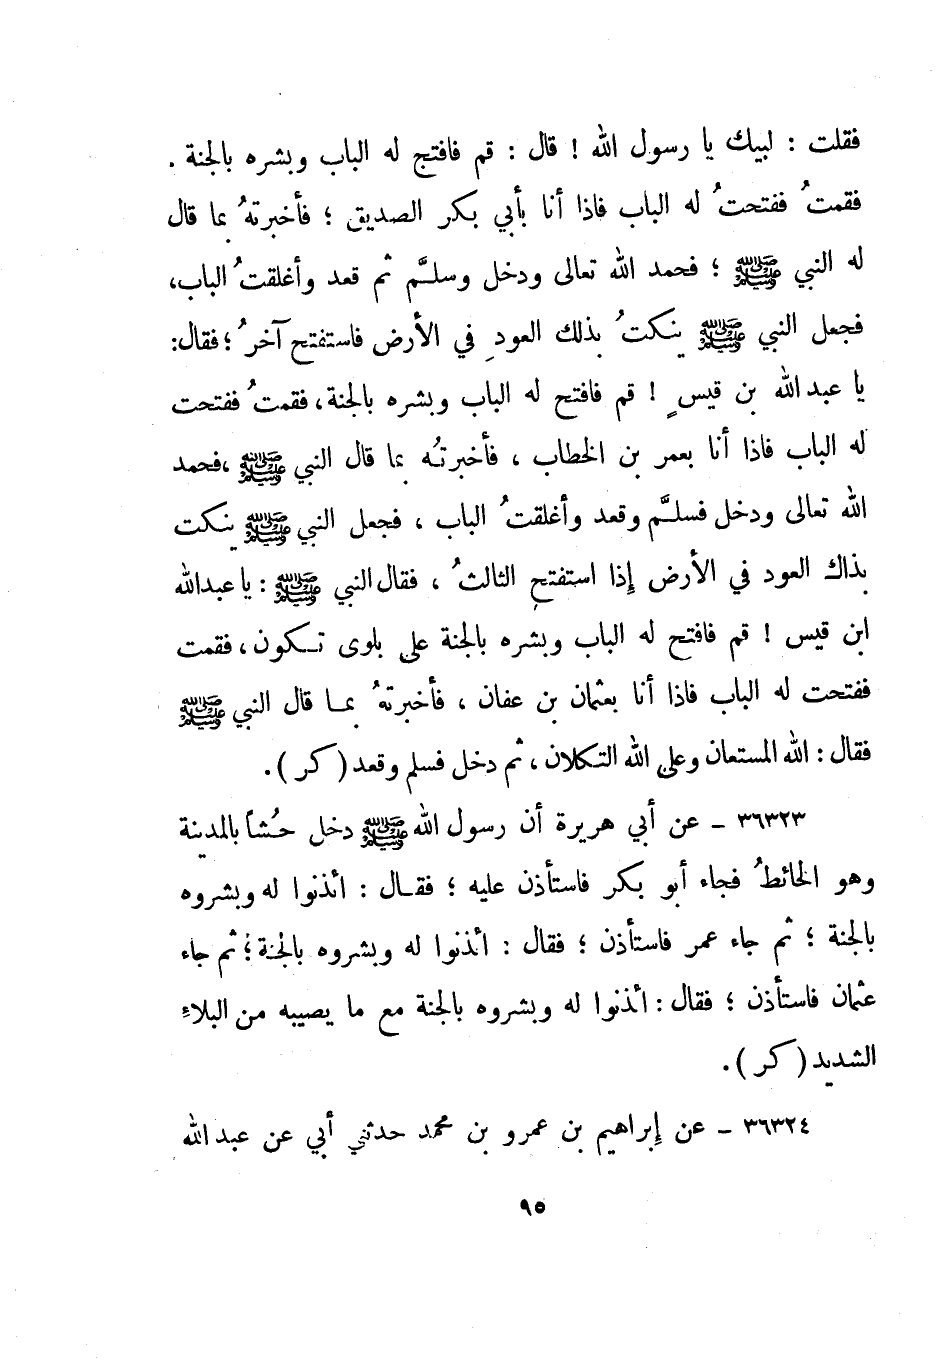 فقلت : لبيك يا رسول الله ! قال : قم فافتح له الباب وبشره بالجنة .
فقمتُ ففتحتُ له الباب فاذا أنا بأبي بكر الصديق ؛ فأخبرتهُ بما قال
له النبي ﷺ ؛ فحمد الله تعالى ودخل وسلَّم ثم قعد وأغلقتُ الباب،
فجعل النبي ﷺ ينكتُ بذلك العودِ في الأرض فاستفتح آخرُ ؛ فقال:
يا عبد الله بن قيسٍ ! قم فافتح له الباب وبشره بالجنة، فقمتُ ففتحت
له الباب فاذا أنا بعمر بن الخطاب ، فأخبرتُه بما قال النبي ﷺ ،فحمد
الله تعالى ودخل فسلَّم وقعد وأغلقتُ الباب ، فجعل النبي ﷺ ينكت
بذاك العود في الأرض إذا استفتح الثالثُ ، فقال النبي ﷺ : يا عبدالله
ابن قيس ! قم فافتح له الباب وبشره بالجنة على بلوى تكون، فقمت
ففتحت له الباب فاذا أنا بعثمان بن عفان ، فأخبرتهُ بما قال النبي ﷺ
فقال : الله المستعان وعلى الله التكلان ، ثم دخل فسلم وقعد ( كر ).
٣٦٣٢٣ ـ عن أبي هريرة أن رسول الله ﷺ دخل حُشاً بالمدينة
وهو الحائطُ فجاء أبو بكر فاستأذن عليه ؛ فقال : ائذنوا له وبشروه
بالجنة ؛ ثم جاء عمر فاستأذن ؛ فقال : ائذنوا له وبشروه بالجنة؛ ثم جاء
عثمان فاستأذن ؛ فقال : ائذنوا له وبشروه بالجنة مع ما يصيبه من البلاءِ
الشديد ( كر ).
٣٦٣٢٤ ـ عن إبراهيم بن عمرو بن محمد حدثني أبي عن عبد الله
٩٥